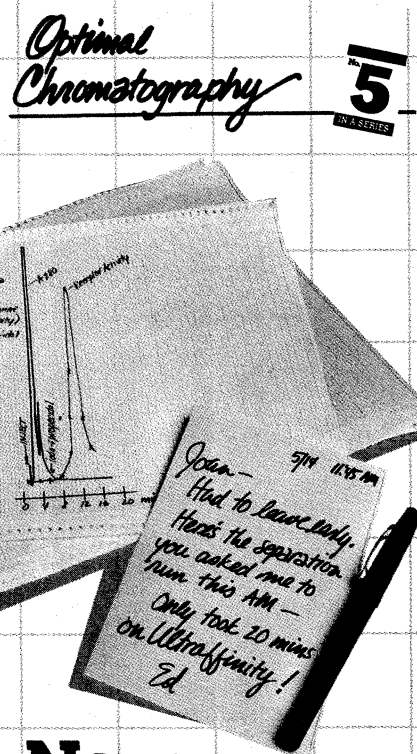 Optimal
Chromatography
No. 5
IN A SERIES
Receptor Activity
0 4 8 12 16 20
5/19 11:45 AM
Joan—
Had to leave early.
Here's the separation
you asked me to
run this AM—
Only took 20 mins
on Ultraffinity!
Ed